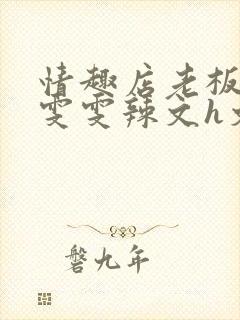 情趣店老板
雯雯辣文h
磐九年